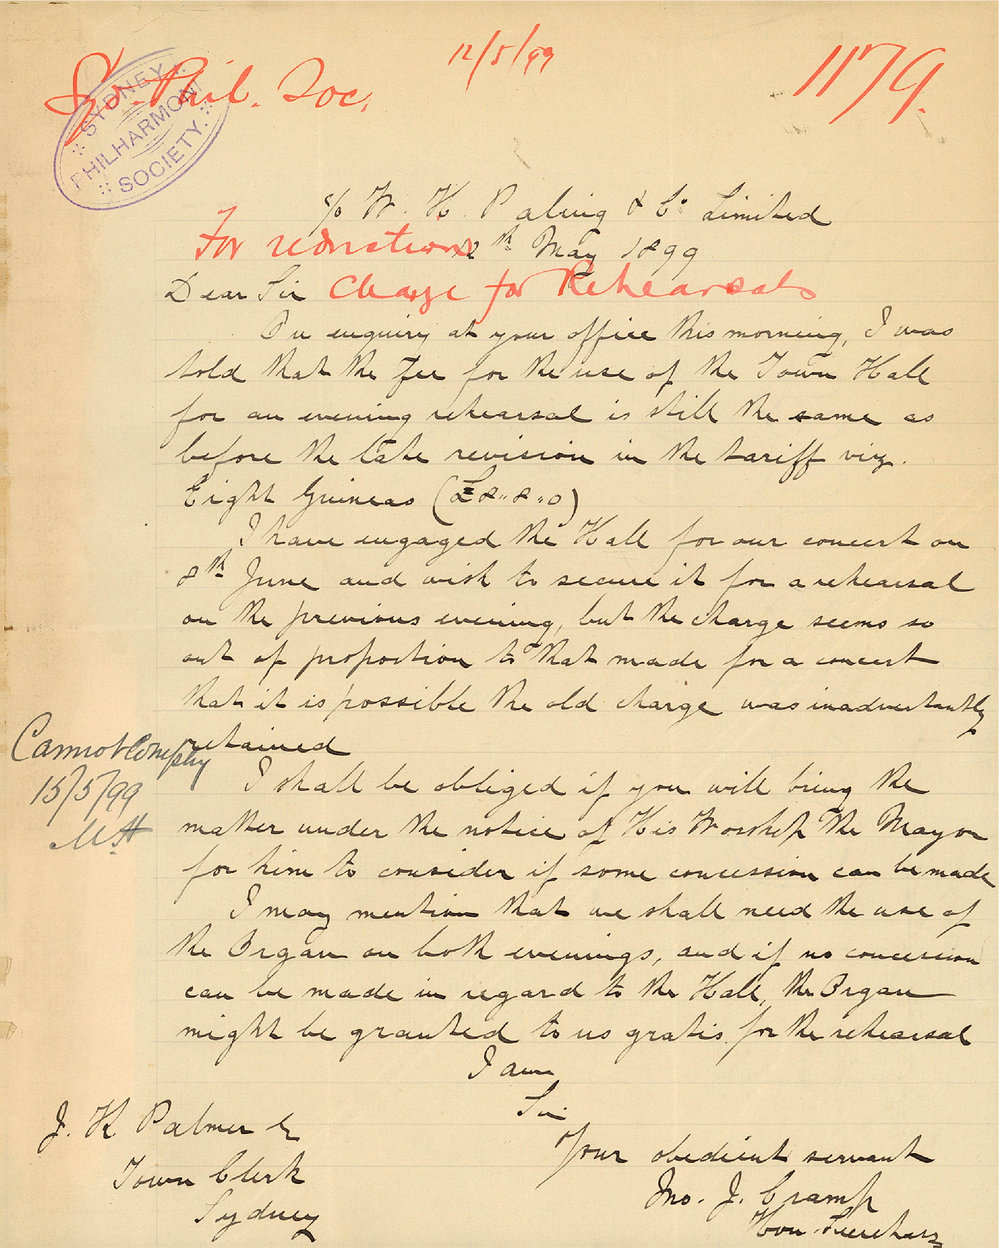 12/5/99
Sy. Phil. Soc.
1179.
SYDNEY
PHILHARMONIC
SOCIETY.
c/o W. H. Paling & Co. Limited
For reduction
12th May 1899
Dear Sir
Charge for Rehearsals
On enquiry at your office this morning, I was
told that the Fee for the use of the Town Hall
for an evening rehearsal is still the same as
before the late revision in the tariff viz.
Eight Guineas (£8..8..0)
I have engaged the Hall for our concert on
8th June and wish to secure it for a rehearsal
on the previous evening, but the charge seems so
out of proportion to that made for a concert
that it is possible the old charge was inadvertantly
retained
Cannot Comply
15/5/99
I shall be obliged if you will bring the
matter under the notice of His Worship the Mayor
for him to consider if some concession can be made
I may mention that we shall need the use of
the Organ on both evenings, and if no concession
can be made in regard to the Hall, the Organ
might be granted to us gratis for the rehearsal
I am
Sir
Your obedient servant
Jno. J. Cramp
Hon. Secretary
J. H. Palmer
Town Clerk
Sydney